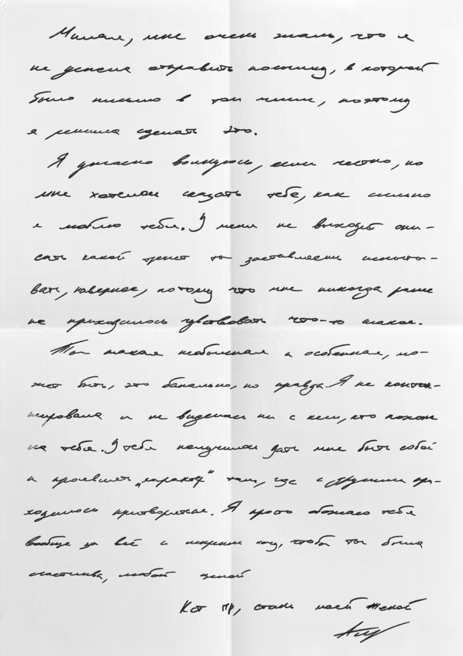 Милая, мне очень жаль, что я
не успела отправить посылку, в которой
было письмо в том числе, поэтому
я решила сделать это.
Я ужасно волнуюсь, если честно, но
мне хотелось сказать тебе, как сильно
я люблю тебя. У меня не выходит опи-
сать какой трепет ты заставляешь испыты-
вать, наверное, потому что мне никогда ранее
не приходилось чувствовать что-то такое.
Ты такая необычная и особенная, мо-
жет быть, это банально, но правда. Я не контак-
тировала и не виделась ни с кем, кто похож
на тебя. У тебя получилось дать мне быть собой
и проявлять „характер“ там, где с другими при-
ходилось притворяться. Я просто обожаю тебя
вообще за всё и искренне хочу, чтобы ты была
счастлива, любой ценой
Кот пр, стань моей женой